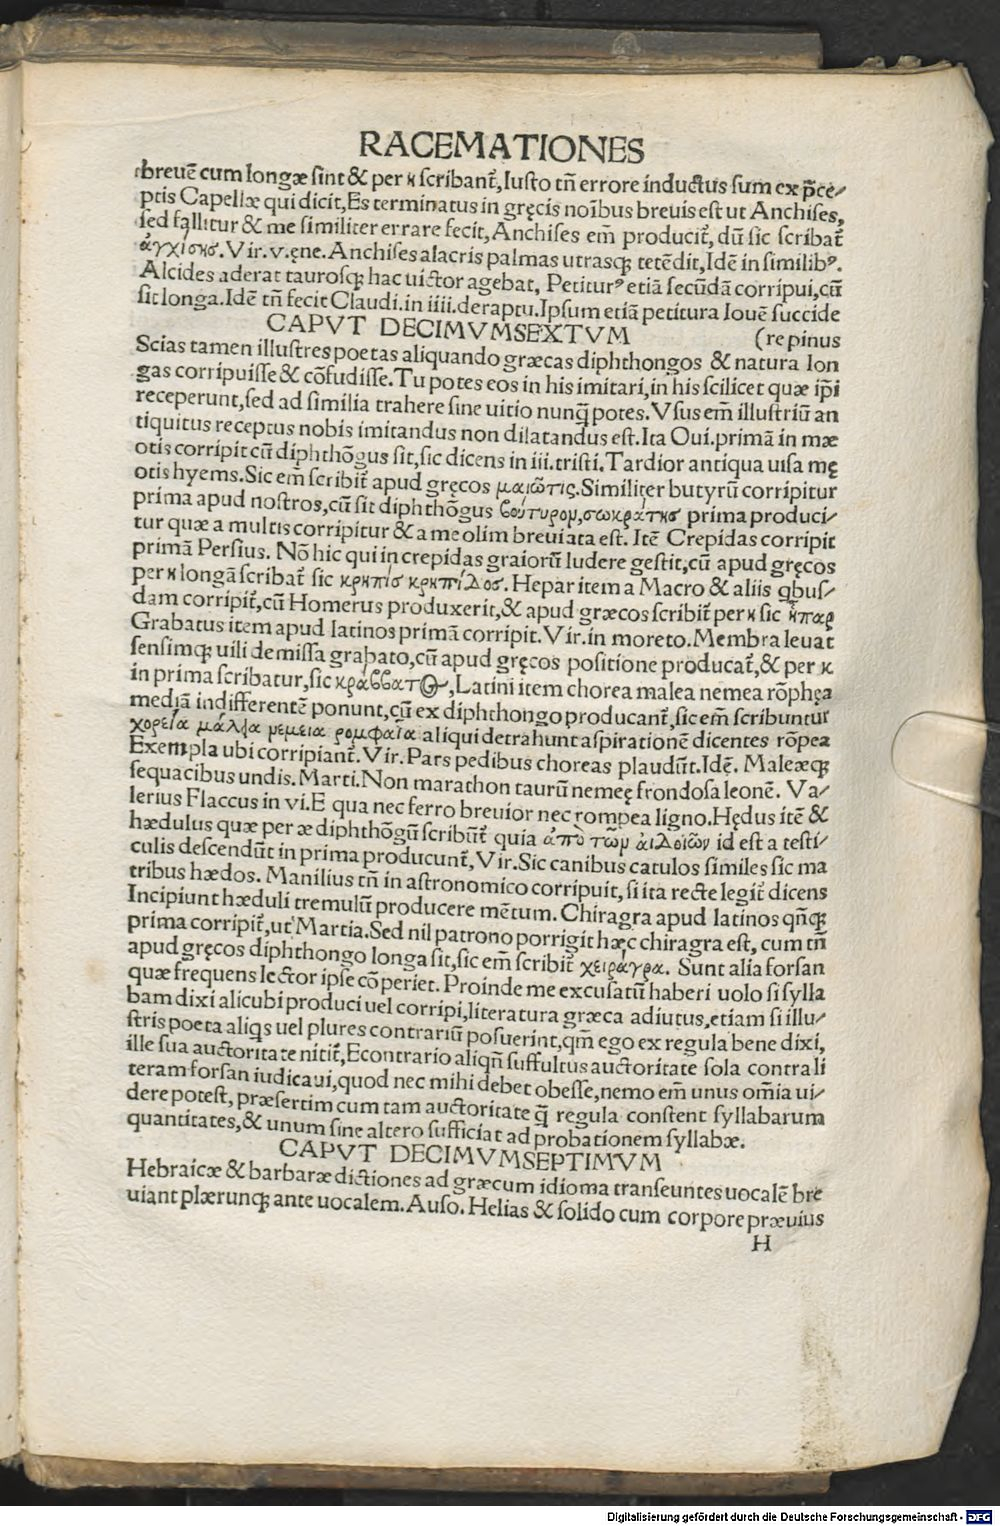 RACEMATIONES
breuē cum longæ ſint & per ϰ ſcribant̃, Iuſto tñ errore inductus ſum ex p̄ce⸗
ptis Capellæ qui dicit, Es terminatus in gręcis noībus breuis eſt ut Anchiſes,
ſed fallitur & me ſimiliter errare fecit, Anchiſes em̄ producit̃, dū ſic ſcribat̃
ἀγχίσης. Vir. v. ęne. Anchiſes alacris palmas utraſqꝫ tetēdit, Idē in ſimilibꝰ.
Alcides aderat tauroſqꝫ hac uictor agebat, Petiturꝰ etiā ſecūdā corripui, cū
ſit longa. Idē tñ fecit Claudi. in iiii. de raptu. Ipſum etiā petitura Iouē ſuccide
CAPVT DECIMVMSEXTVM (re pinus
Scias tamen illuſtres poetas aliquando græcas diphthongos & natura lon
gas corripuiſſe & cōfudiſſe. Tu potes eos in his imitari, in his ſcilicet quæ ip̄i
receperunt, ſed ad ſimilia trahere ſine uitio nunq̄ potes. Vſus em̄ illuſtriū an
tiquitus receptus nobis imitandus non dilatandus eſt. Ita Oui. primā in mæ
otis corripit cū diphthōgus ſit, ſic dicens in iii. triſti. Tardior antiqua uiſa mę
otis hyems. Sic em̄ ſcribit̃ apud gręcos μαιῶτις. Similiter butyrū corripitur
prima apud noſtros, cū ſit diphthōgus βούτυρομ, σωκράτης prima produci⸗
tur quæ a multis corripitur & a me olim breuiata eſt. Itē Crepidas corripit
primā Perſius. Nō hic qui in crepidas graiorū ludere geſtit, cū apud gręcos
per ϰ longā ſcribat̃ ſic κρηπίσ κρηπίδοσ. Hepar item a Macro & aliis qbuſ⸗
dam corripit̃, cū Homerus produxerit, & apud græcos ſcribit̃ per ϰ ſic ἧπαρ
Grabatus item apud latinos primā corripit. Vir. in moreto. Membra leuat
ſenſimqꝫ uili demiſſa grabato, cū apud gręcos poſitione producat̃, & per κ
in prima ſcribatur, ſic κράββατος, Latini item chorea malea nemea rōphęa
mediā indifferentē ponunt, cū ex diphthongo producant̃, ſic em̄ ſcribuntur
χορεία μάλεια μεμεια ρομφαῖα aliqui detrahunt aſpirationē dicentes rōpea
Exempla ubi corripiant̃. Vir. Pars pedibus choreas plaudūt. Idē. Maleæqꝫ
ſequacibus undis. Marti. Non marathon taurū nemeę frondoſa leonē. Va⸗
lerius Flaccus in vi. E qua nec ferro breuior nec rompea ligno. Hędus itē &
hædulus quæ per æ diphthōgū ſcribūt̃ quia ἀπὸ τῶμ αἰδοίων id eſt a teſti⸗
culis deſcendūt in prima producunt̃, Vir. Sic canibus catulos ſimiles ſic ma
tribus hædos. Manilius tñ in aſtronomico corripuit, ſi ita recte legit̃ dicens
Incipiunt hæduli tremulū producere mētum. Chiragra apud latinos qñqꝫ
prima corripit̃, ut Martia. Sed nil patrono porrigit hæc chiragra eſt, cum tñ
apud gręcos diphthongo longa ſit, ſic em̄ ſcribit̃ χειράγρα. Sunt alia forſan
quæ frequens lector ipſe cōperiet. Proinde me excuſatū haberi uolo ſi ſylla
bam dixi alicubi produci uel corripi, literatura græca adiutus, etiam ſi illu⸗
ſtris poeta aliqs uel plures contrariū poſuerint, qm̄ ego ex regula bene dixi,
ille ſua auctoritate nitit̃, Econtrario aliqñ ſuffultus auctoritate ſola contra li
teram forſan iudicaui, quod nec mihi debet obeſſe, nemo em̄ unus om̄ia ui⸗
dere poteſt, præſertim cum tam auctoritate q̄ regula conſtent ſyllabarum
quantitates, & unum ſine altero ſufficiat ad probationem ſyllabæ.
CAPVT DECIMVMSEPTIMVM
Hebraicæ & barbaræ dictiones ad græcum idioma tranſeuntes uocalē bre
uiant plærunqꝫ ante uocalem. Auſo. Helias & ſolido cum corpore præuius
H
Digitalisierung gefördert durch die Deutsche Forschungsgemeinschaft - DFG